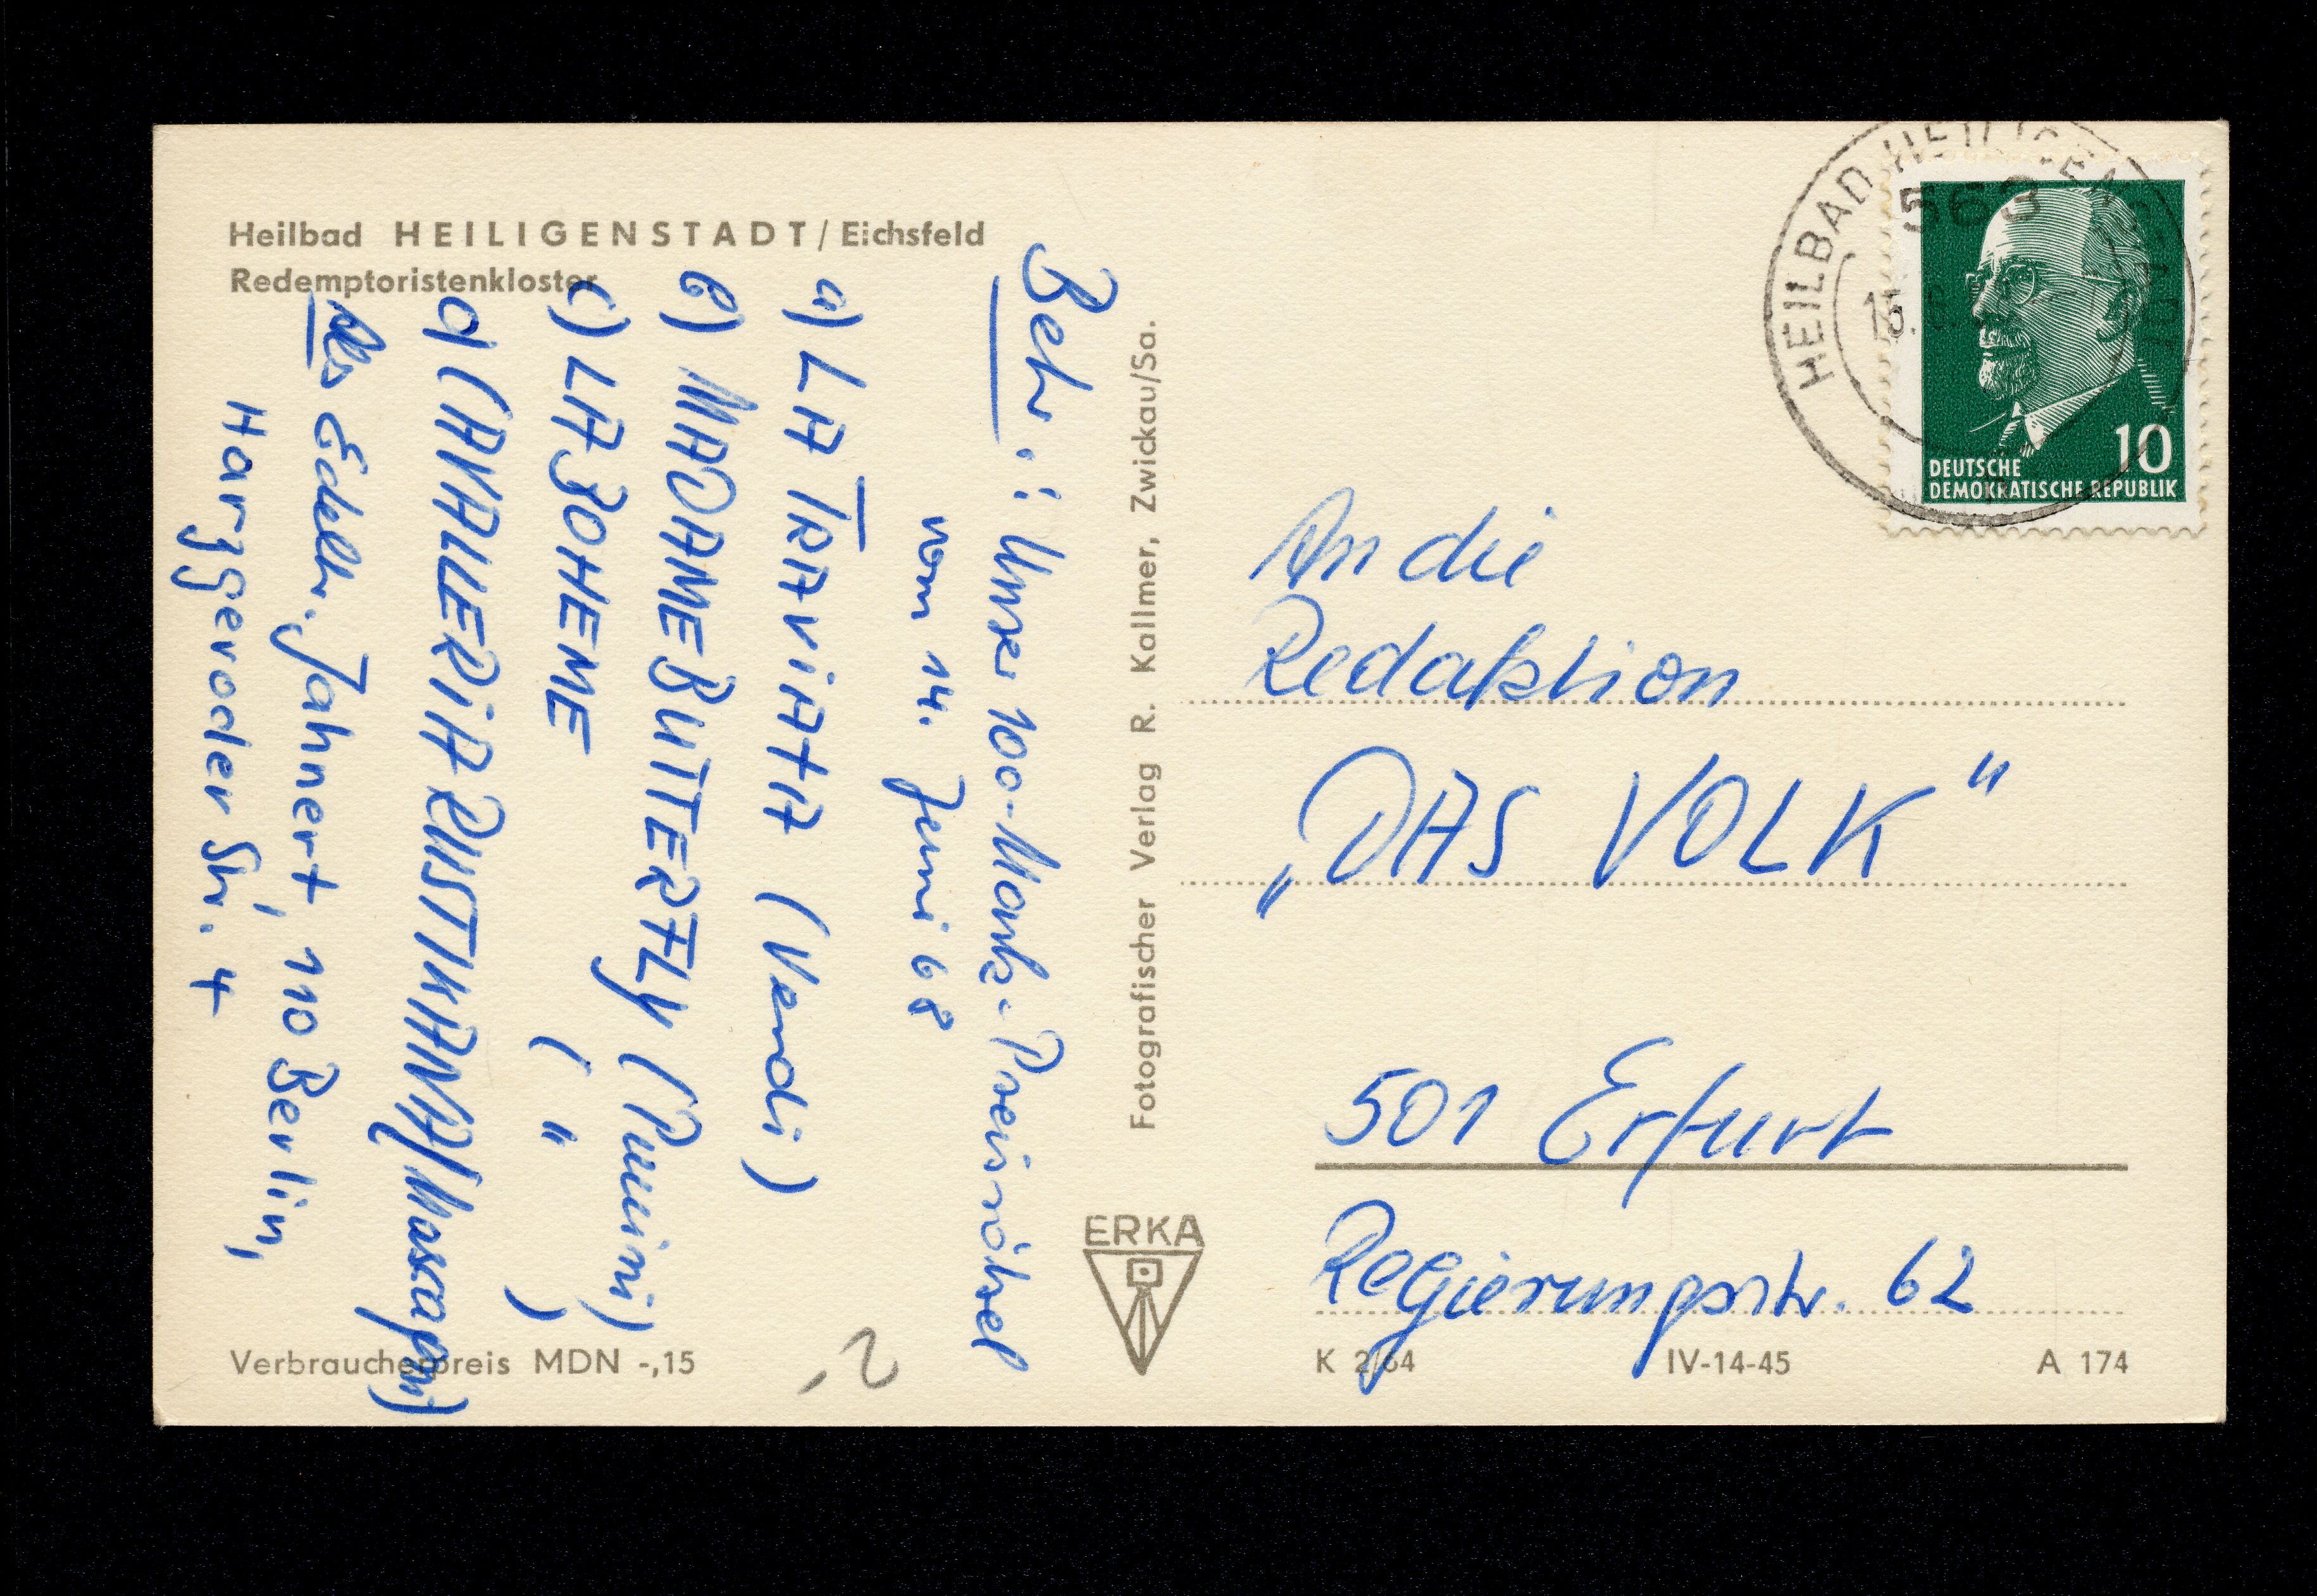 Heilbad HEILIGENSTADT / Eichsfeld
Redemptoristenkloster
Betr.: Unser 100-Mark-Preisrätsel
vom 14. Juni 68
a) LA TRAVIATA (Verdi)
b) MADAME BUTTERFLY (Puccini)
c) LA BOHEME ( " )
d) CAVALLERIA RUSTIKANA (Mascagni)
Abs Jahnert, 110 Berlin,
Harzgeroder Str. 4
Verbraucherpreis MDN -,15
Fotografischer Verlag R. Kallmer, Zwickau/Sa.
ERKA
HEILBAD HEILIGENSTADT
563
DEUTSCHE
DEMOKRATISCHE REPUBLIK
10
An die
Redaktion
„DAS VOLK"
501 Erfurt
Regierungsstr. 62
K 2/64 IV-14-45 A 174
2,